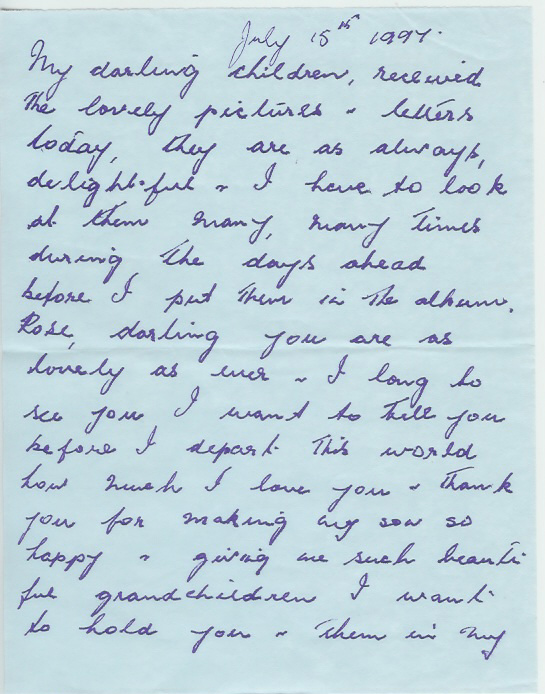 July 15th 1997.
My darling children, received
the lovely pictures & letters
today, they are as always,
delightful & I have to look
at them many, many times
during the days ahead
before I put them in the album.
Rose, darling you are as
lovely as ever & I long to
see you I want to tell you
before I depart this world
how much I love you & thank
you for making my son so
happy & giving me such beauti
ful grandchildren I want
to hold you & them in my